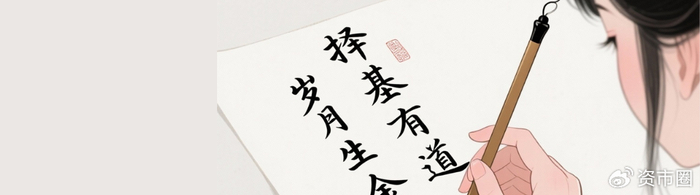 择基有道
岁月生金
资市圈